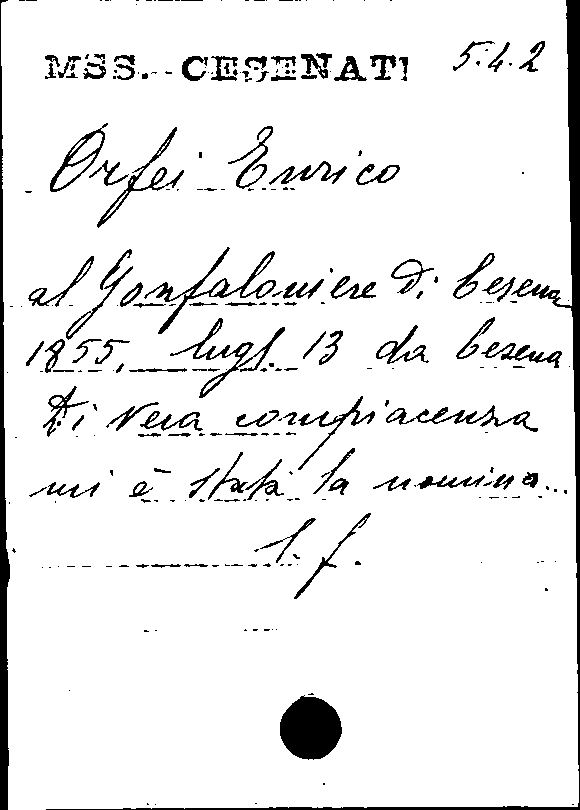 MSS. CESENATI 5.4.2
Orfei Enrico
al Gonfaloniere di Cesena
1855, lugl. 13 da Cesena
Di vera compiacenza
mi è stata la nomina...
l. f.